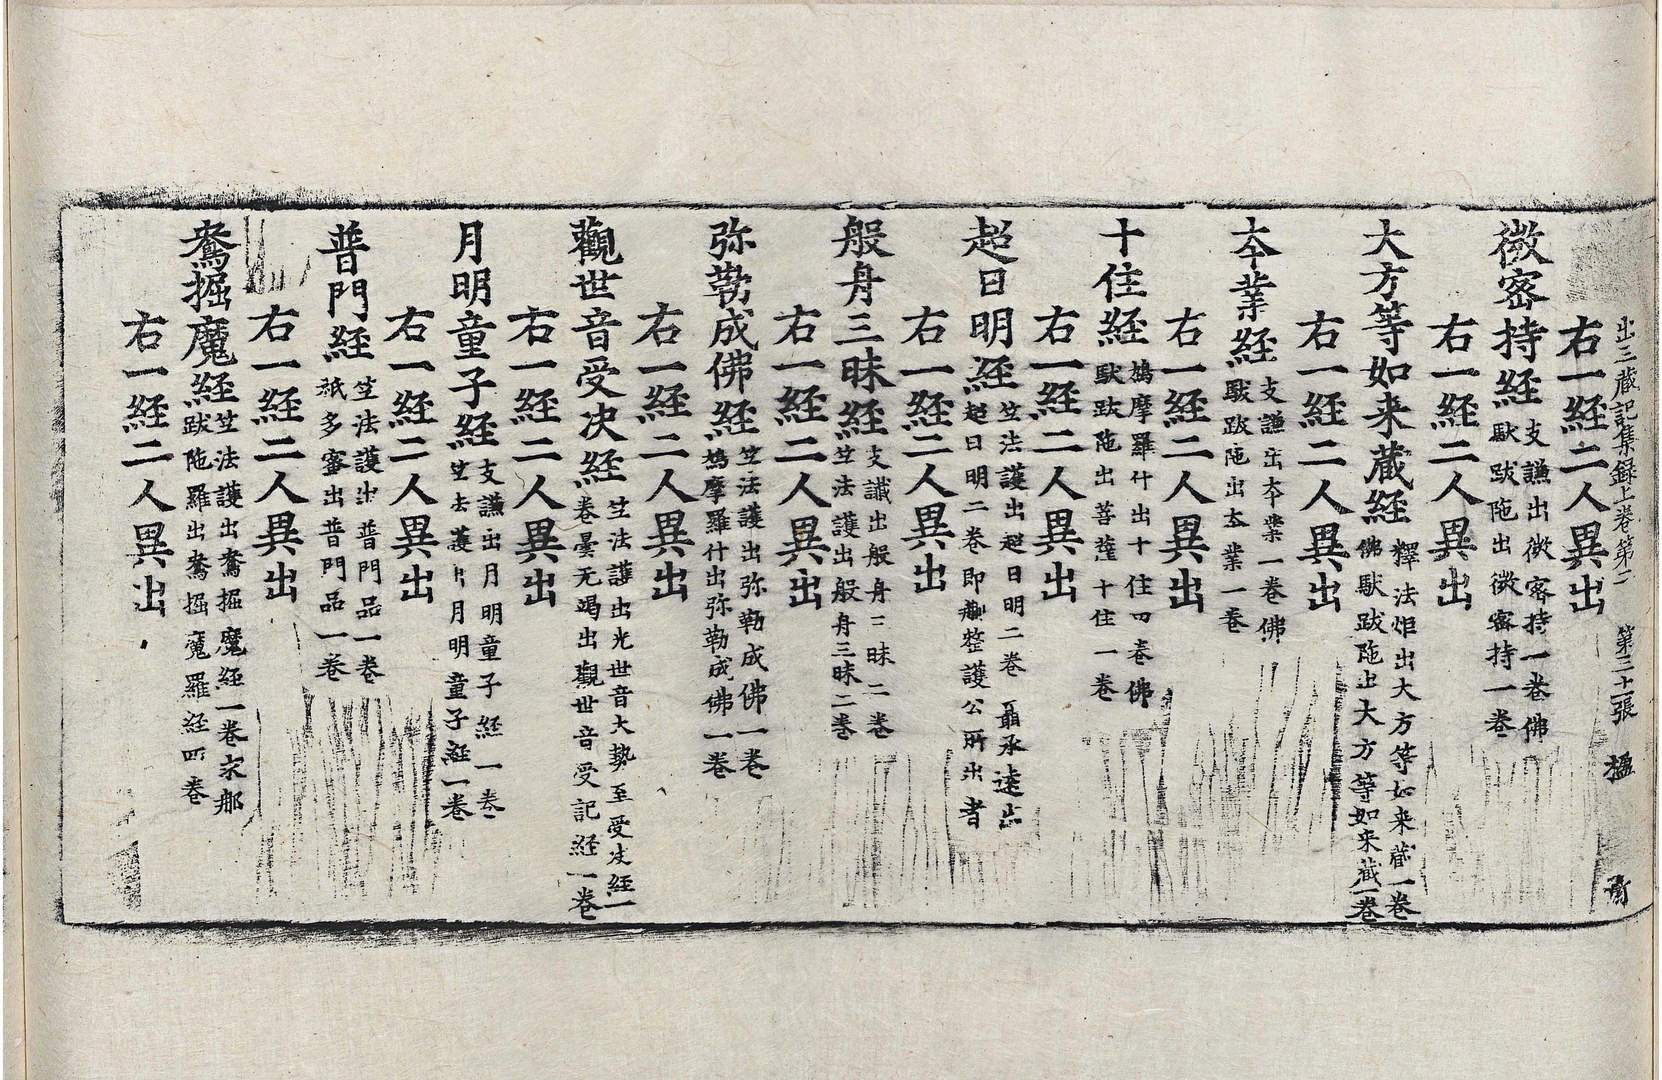 出三藏記集録上卷第二 第三十二張 楹
右一經二人異出
微密持經 支謙出微密持一卷佛
馱跋陁出微密持一卷
右一經二人異出
大方等如来藏經 釋法炬出大方等如来藏一卷
佛馱跋陁出大方等如来藏一卷
右一經二人異出
夲業經 支謙出夲業一卷佛
馱跋陁出夲業一卷
右一經二人異出
十住經 鳩摩羅什出十住四卷佛
馱跋陁出菩薩十住一卷
右一經二人異出
超日明經 竺法護出超日明二卷 聶承遠出
超日明二卷即整護公所出者
右一經二人異出
般舟三昧經 支讖出般舟三昧二卷
竺法護出般舟三昧二卷
右一經二人異出
弥勒成佛經 竺法護出弥勒成佛一卷
鳩摩羅什出弥勒成佛一卷
右一經二人異出
觀世音受决經 竺法護出光世音大勢至受决經一
卷曇无竭出觀世音受記經一卷
右一經二人異出
月明童子經 支謙出月明童子經一卷
竺法護出月明童子經一卷
右一經二人異出
普門經 竺法護出普門品一卷
祇多蜜出普門品一卷
右一經二人異出
鴦掘魔經 竺法護出鴦掘魔經一卷求那
跋陁羅出鴦掘魔羅經四卷
右一經二人異出